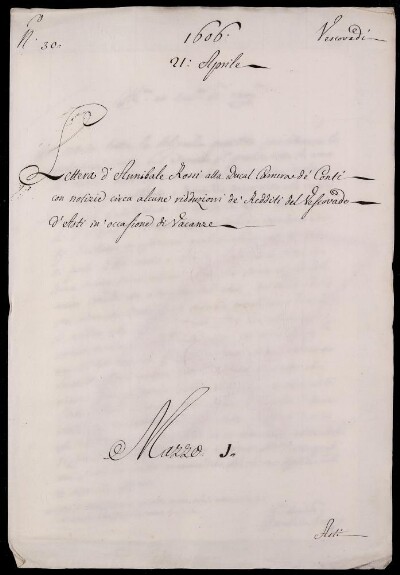 N. 30.
1606.
Vescovadi
21: Aprile
Lettera d'Annibale Rossi alla Ducal Camera de' Conti
con notizie circa alcune ridduzioni de' Redditi del Vescovado
d'Asti in occasione di Vacanze
Mazzo. J.
Asti